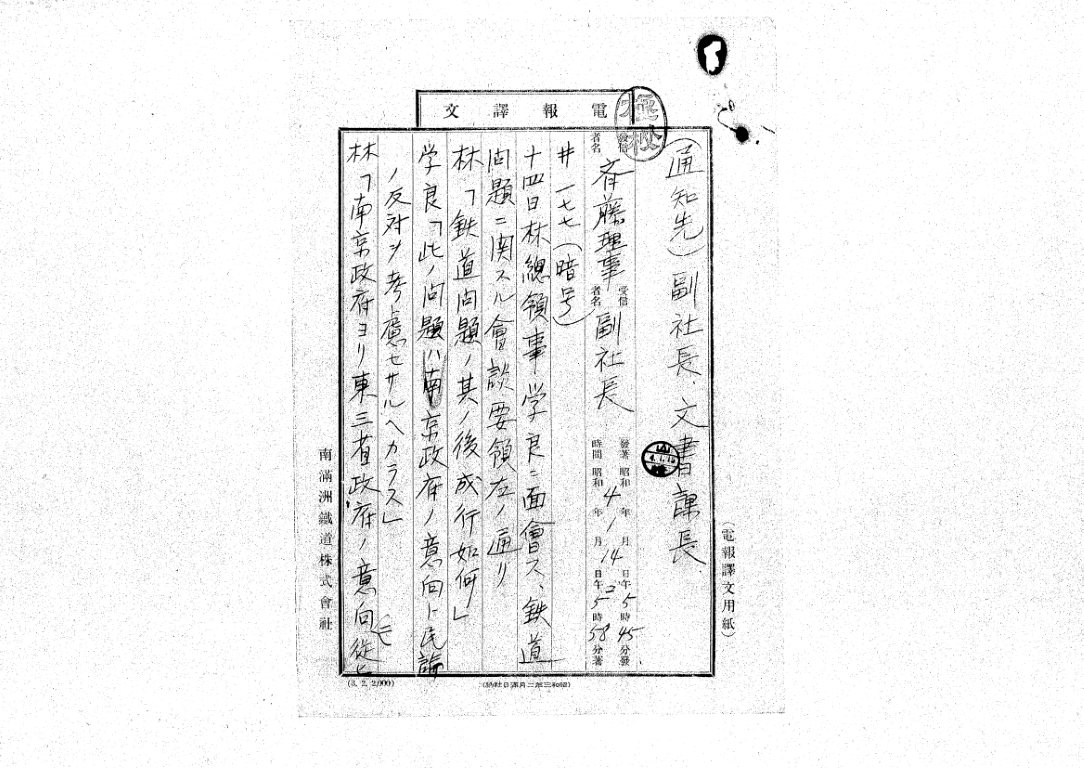 電報譯文
極秘
(通知先)副社長、文書課長
發信者名 斉藤理事 受信者名 副社長 發著時間 昭和4年1月14日午后5時45分發
昭和 年 月 日午 5時58分著
#一七七(暗号)
十四日林總領事学良ニ面會ス、鉄道
問題ニ関スル會談要領左ノ通リ
林「鉄道問題ノ其ノ後成行如何」
学良「此ノ問題ハ南京政府ノ意向ト民論
ノ反対ヲ考慮セサルヘカラス」
林「南京政府ヨリ東三省政府ノ意向
モ
南滿洲鐵道株式會社
(電報譯文用紙)
(3. 2. 2,000)